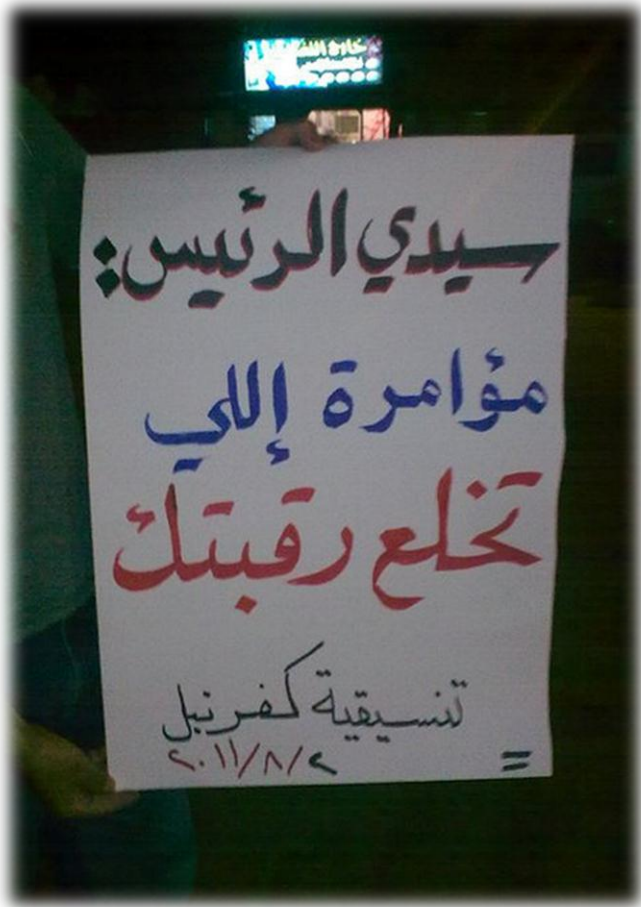 سيدي الرئيس:
مؤامرة إللي
تخلع رقبتك
تنسيقية كفرنبل
٢٠١١/٨/٢
=